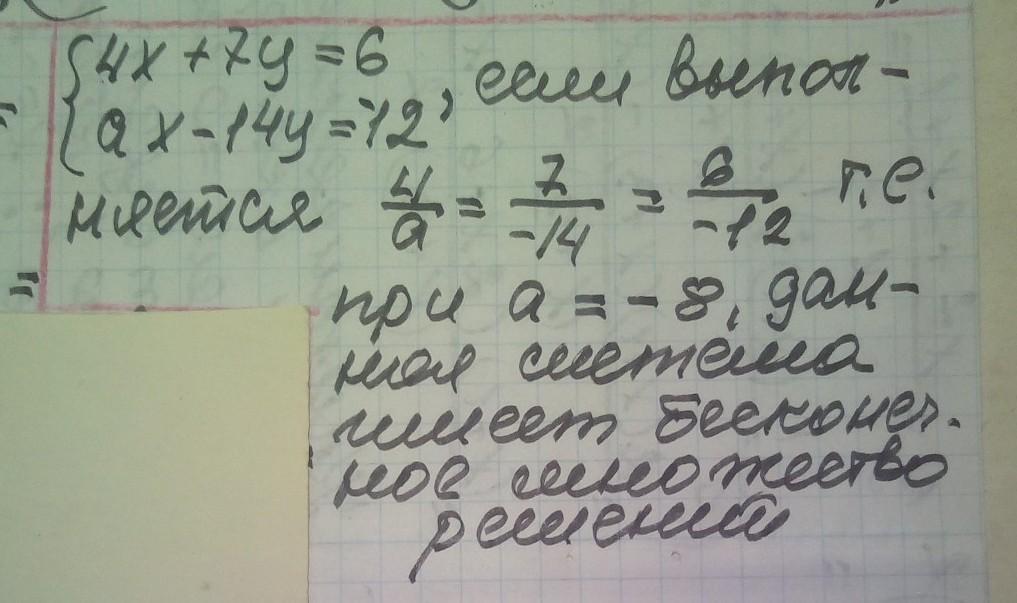 {4x+7y=6
{ax-14y=-12, если выпол-
няется 4/a = 7/-14 = 6/-12 т.е.
= при a = -8, дан-
ная система
имеет бесконеч.
ное множество
решений